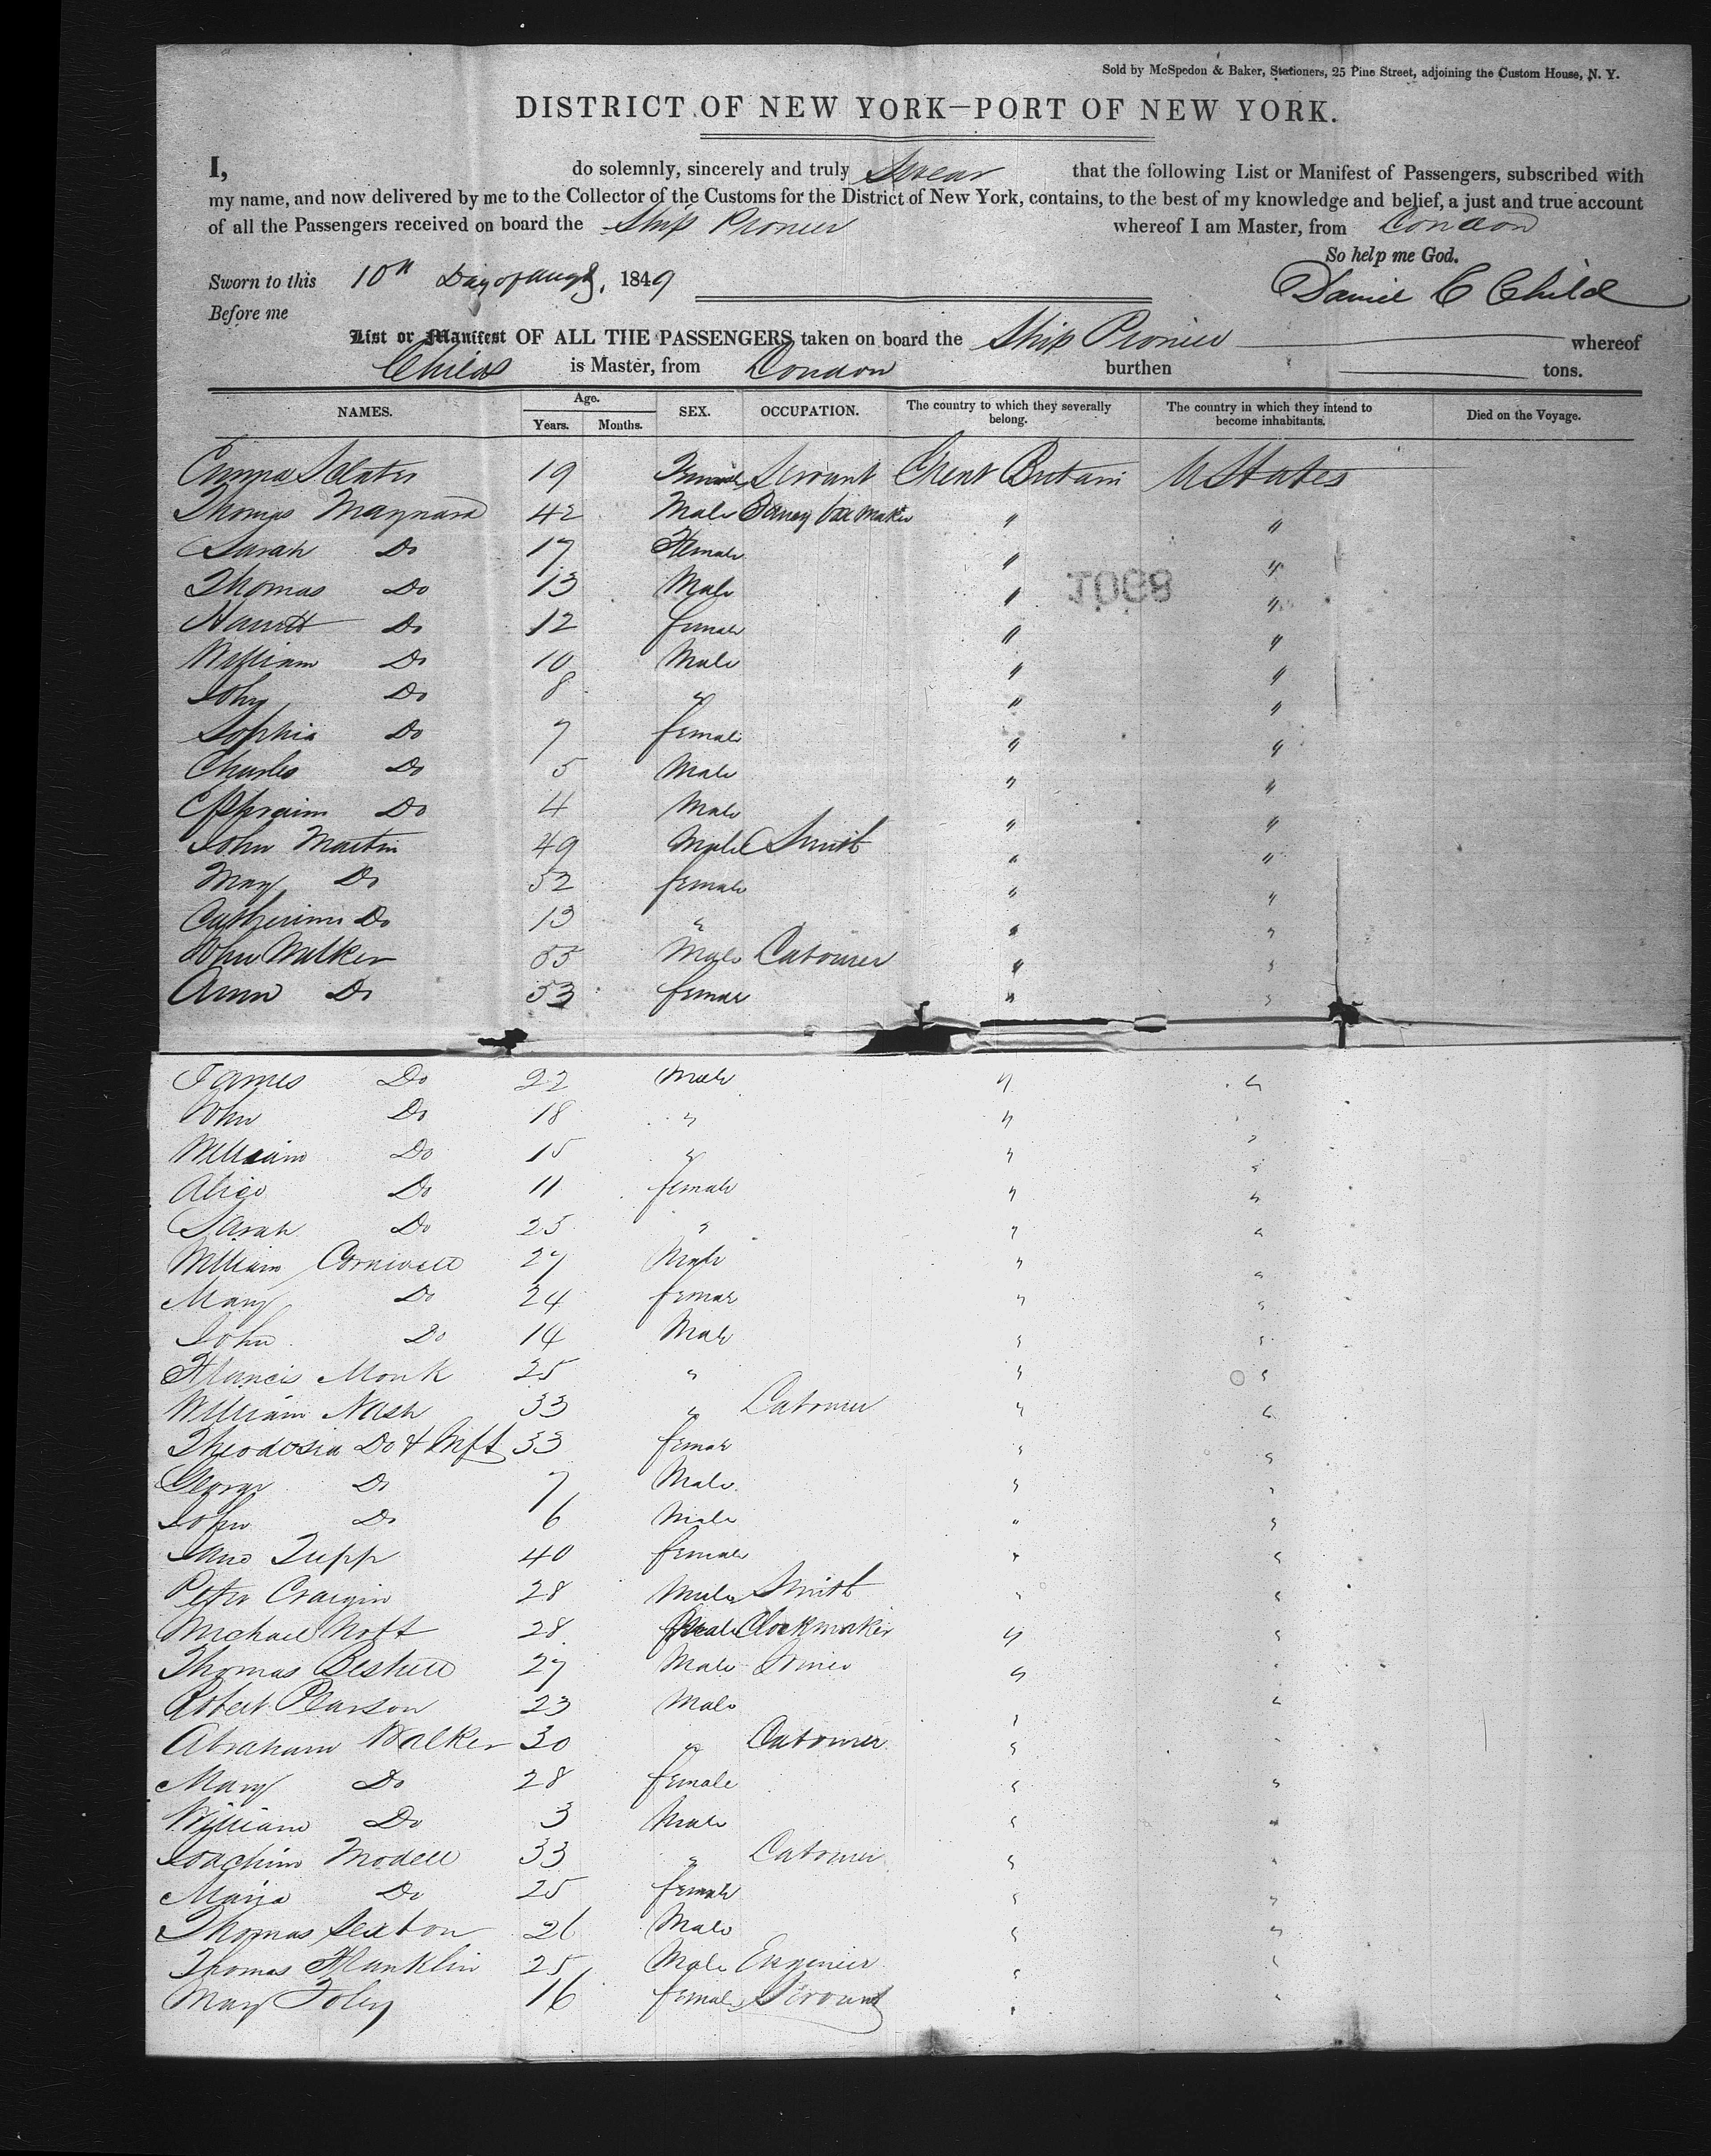 Sold by McSpedon & Baker, Stationers, 25 Pine Street, adjoining the Custom House, N. Y.
DISTRICT OF NEW YORK—PORT OF NEW YORK.
I, do solemnly, sincerely and truly Swear that the following List or Manifest of Passengers, subscribed with
my name, and now delivered by me to the Collector of the Customs for the District of New York, contains, to the best of my knowledge and belief, a just and true account
of all the Passengers received on board the Ship Pioneer whereof I am Master, from London
So help me God.
Sworn to this 10th Day of Augt, 1849 Daniel C Child
Before me
List or Manifest OF ALL THE PASSENGERS taken on board the Ship Pioneer whereof
Childs is Master, from London burthen tons.
NAMES. Age. Years. Months. SEX. OCCUPATION. The country to which they severally belong. The country in which they intend to become inhabitants. Died on the Voyage.
Emma Slater 19 Female Servant Great Britain U States
Thomas Maynard 42 Male Fancy box maker " "
Sarah Do 17 Female " "
Thomas Do 13 Male " "
Harriett Do 12 female " "
William Do 10 Male " "
John Do 8 " " "
Sophia Do 7 female " "
Charles Do 5 Male " "
Ephraim Do 4 Male " "
John Martin 49 Male Smith " "
Mary Do 52 female " "
Catherine Do 13 " " "
John Walker 55 Male Labourer " "
Ann Do 53 female " "
James Do 22 Male " "
John Do 18 " " "
William Do 15 " " "
Alice Do 11 female " "
Sarah Do 25 " " "
William Cornwell 27 Male " "
Mary Do 24 female " "
John Do 14 Male " "
Francis Monk 25 " " "
William Nash 33 " Labourer " "
Theodosia Do & Inft 33 female " "
George Do 7 Male " "
John Do 6 Male " "
Jane Tupp 40 female " "
Peter Craigin 28 Male Smith " "
Michael Noft 28 Male Clockmaker " "
Thomas 27 Male " "
Robert Pearson 23 Male " "
Abraham Walker 30 " Labourer " "
Mary Do 28 female " "
William Do 3 Male " "
Joachim Modell 33 " Labourer " "
Maria Do 25 female " "
Thomas Sexton 26 Male " "
Thomas Franklin 25 Male Engenier " "
Mary Foley 16 female Servant " "